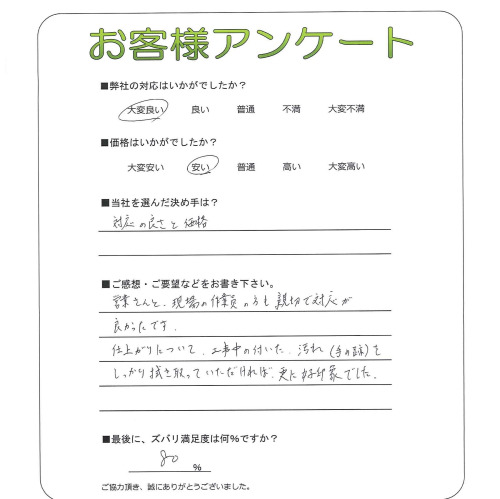 お客様アンケート
■弊社の対応はいかがでしたか?
大変良い 良い 普通 不満 大変不満
■価格はいかがでしたか?
大変安い 安い 普通 高い 大変高い
■当社を選んだ決め手は?
対応の良さと価格
■ご感想・ご要望などをお書き下さい。
営業さんと、現場の作業員の方も親切で対応が
良かったです。
仕上がりについて、工事中の付いた、汚れ(手の跡)を
しっかり拭き取っていただければ、更に好印象でした。
■最後に、ズバリ満足度は何%ですか?
80 %
ご協力頂き、誠にありがとうございました。